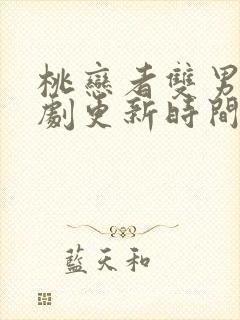 桃戀者雙男
劇更新時間
藍天和